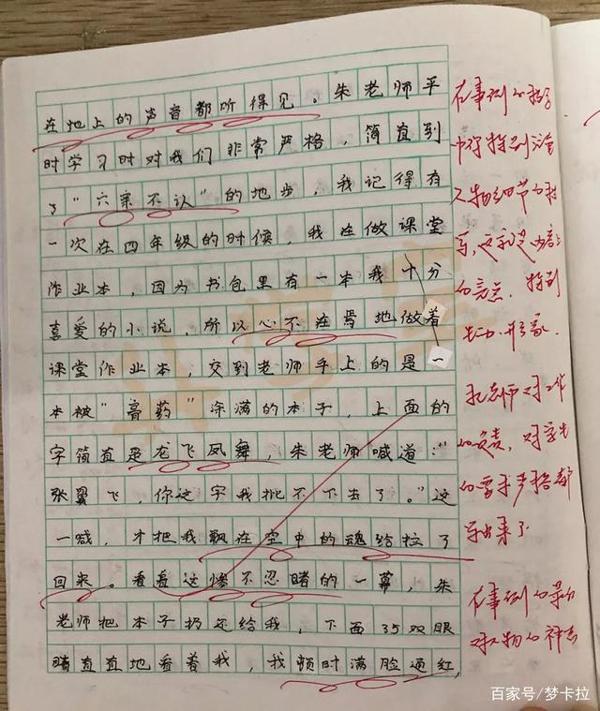 在地上的声音都听得见。朱老师平
时学习时对我们非常严格，简直到
了“六亲不认”的地步，我记得有
一次在四年级的时候，我在做课堂
作业本，因为书包里有一本我十分
喜爱的小说，所以心不在焉地做着
课堂作业本，交到老师手上的是一
本被“膏药”涂满的本子，上面的
字简直是龙飞凤舞，朱老师喊道：“
张翼飞，你这字我批不下去了。”这
一喊，才把我飘在空中的魂给拉了
回来。看着这惨不忍睹的一幕，朱
老师把本子扔还给我，下面35双眼
睛直直地看着我，我顿时满脸通红，
在事例的
中你特别注意
人物细节的描
写，这就是文章
的亮点，特别
生动形象。
把老师对工作
的负责，对学生
的要求严格都
写出来了
在事例的
对人物的神态
百家号/梦卡拉